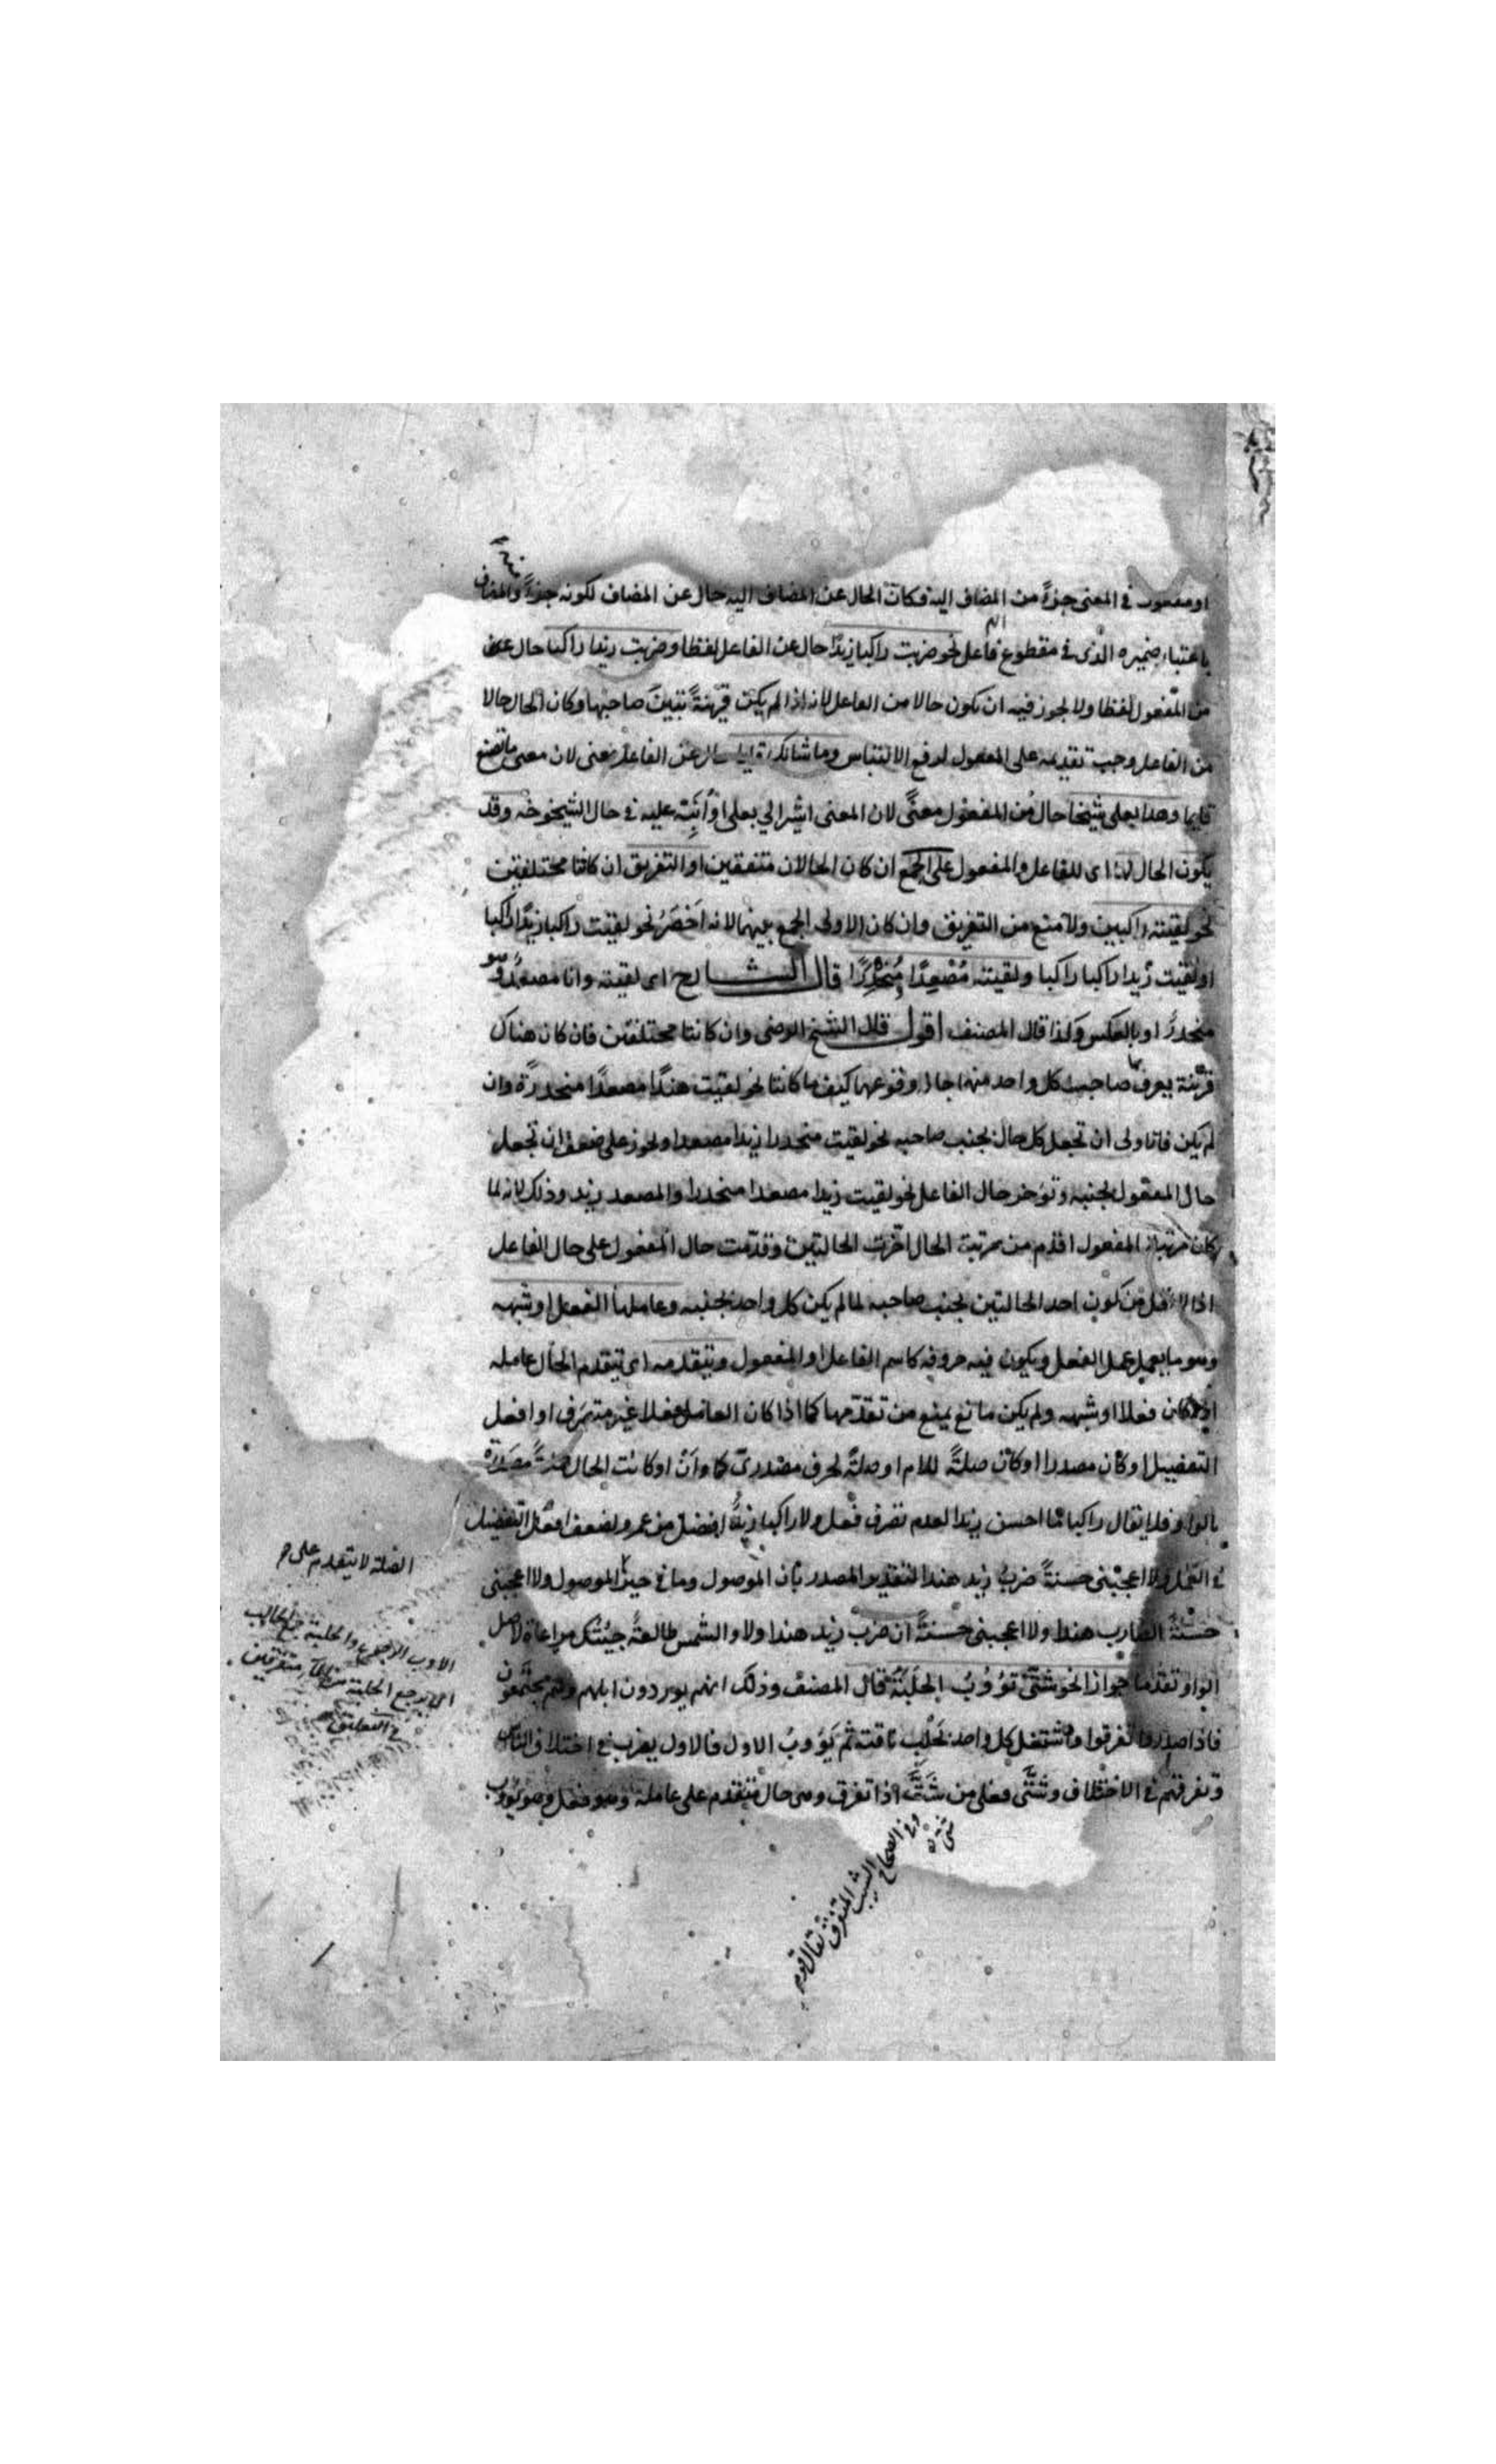 او مفعول في المعنى جزءً من المضاف اليه فكانّ الحال عن المضاف اليه حال عن المضاف لكونه جزءً والمضاف
باعتبار ضميره الذى في مقطوع فاعل نحو ضربت راكبا زيدًا حال عن الفاعل لفظا وضربت زيدا راكبا حال
من المفعول لفظا ولا يجوز فيه ان يكون حالا من الفاعل لانه اذا لم يكن قرينةً تبيّن صاحبها وكان الحال حالا
من الفاعل وجب تقديمه على المفعول لدفع الالتباس وما شانك عن الفاعل معنى لان معنى ما تصنع
قايما وهذا بعلى شيخا حال من المفعول معنًى لان المعنى اشير الي بعلى او اُنَبِّه عليه في حال الشيخوخه وقد
يكون الحال لهما اى للفاعل والمفعول على الجمع ان كان الحالان متفقين او التفريق ان كانتا مختلفتين
نحو لقيته راكبين ولا منع من التفريق وان كان الاولى الجمع بينهما لانه اَخْصَرُ نحو لقيت راكبا زيدًا راكبا
او لقيت زيدا راكبا راكبا ولقيته مُصْعِدًا مُنْحَدِرًا قال الشالح اى لقيته وانا مصعدٌ وهو
منحدرٌ او بالعكس وكذا قال المصنف اقول قال الشيخ الرضى وان كانتا مختلفتين فان كان هناك
قرينة يعرف بها صاحب كل واحد منهما جاز وقوعهما كيف ما كانتا نحو لقيت هندًا مصعدًا منحدرةً وان
لم يكن فالاولى ان تجعل كل حال بجنب صاحبه نحو لقيت منحدرا زيدا مصعدا ويجوز على ضعف ان تجعل
حال المفعول بجنبه وتؤخر حال الفاعل نحو لقيت زيدا مصعدا منحدرا والمصعد زيد وذلك لانه لما
كان مرتبة المفعول اقدم من مرتبة الحال اخّرت الحالتين وقدّمت حال المفعول على حال الفاعل
اذ لا اقل من كون احد الحالتين بجنب صاحبه لما لم يكن كل واحد بجنبه وعاملها الفعل او شبهه
وهو ما يعمل عمل الفعل ويكون فيه حروفه كاسم الفاعل او المفعول ويتقدمه اى يتقدم الحال عامله
اذا كان فعلا او شبهه ولم يكن مانع يمنع من تقدّمها كما اذا كان العامل فعلا غير متصرف او افعل
التفضيل او كان مصدرا او كان صلةً للام او صلةً لحرف مصدرى كما واَنْ او كانت الحال مصدّرة
بالواو فلا يقال راكبا ما احسن زيدا لعدم تصرف فعل ولا راكبا زيدٌ افضل من عمرو لضعف افعل التفضيل
في العمل ولا اعجبنى حسنةً ضربُ زيد هندا لتقدير المصدر بأن الموصول وما في حيز الموصول ولا اعجبنى
حسنةً الضارب هندا ولا اعجبنى حسنةً ان ضرب زيد هندا ولا والشمس طالعةً جِئتُك مراعاة لاصل
الواو تقدّما جوازا نحو شتّى تَؤُوْبُ الحَلَبَةُ قال المصنف وذلك انهم يوردون ابلهم وهم مجتمعون
فاذا صدروا تفرقوا واشتغل كل واحد بحَلْب ناقته ثم يَؤُوبُ الاول فالاول يضرب في اختلاف الناس
وتفرقهم في الاختلاف وشتّى فعلى من شَتَّ اذا تفرق وهى حال متقدم على عامله وهو فعل وهو تؤوب
الصلة لا يتقدم على
الاوب الرجوع والحلبة جمع الحالب
وفي الصحاح الشتيت المتفرق يقال قوم
شتى